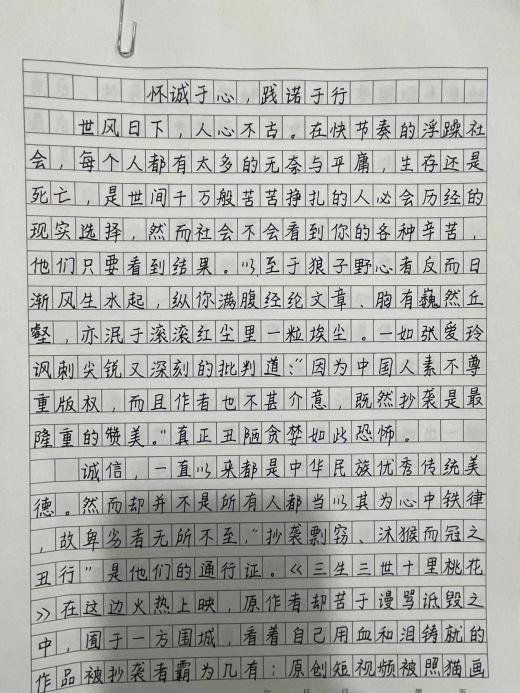 怀诚于心，践诺于行
世风日下，人心不古。在快节奏的浮躁社
会，每个人都有太多的无奈与平庸，生存还是
死亡，是世间千万般苦苦挣扎的人必会历经的
现实选择，然而社会不会看到你的各种辛苦，
他们只要看到结果。以至于狼子野心者反而日
渐风生水起，纵你满腹经纶文章、胸有巍然丘
壑，亦泯于滚滚红尘里一粒埃尘。一如张爱玲
讽刺尖锐又深刻的批判道：“因为中国人素不尊
重版权，而且作者也不甚介意，既然抄袭是最
隆重的赞美。”真正丑陋贪婪如此恐怖。
诚信，一直以来都是中华民族优秀传统美
德。然而却并不是所有人都当以其为心中铁律
，故卑劣者无所不至，“抄袭剽窃、沐猴而冠之
丑行”是他们的通行证。《三生三世十里桃花
》在这边火热上映，原作者却苦于谩骂诋毁之
中，囿于一方围城，看着自己用血和泪铸就的
作品被抄袭者霸为几有；原创短视频被照猫画